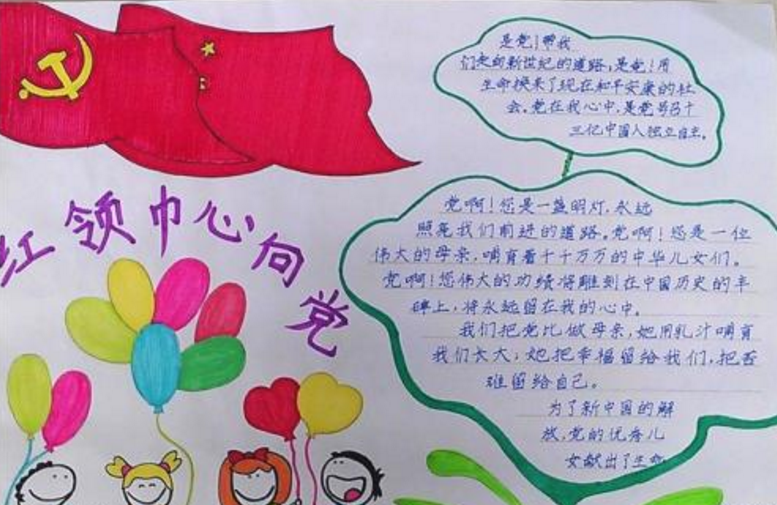 红领巾心向党
是党！带我
们走向新世纪的道路，是党！用
生命换来了现在和平安康的社
会。党在我心中，是党号召十
三亿中国人独立自主。
党啊！您是一盏明灯，永远
照亮我们前进的道路。党啊！您是一位
伟大的母亲，哺育着千千万万的中华儿女们。
党啊！您伟大的功绩得雕刻在中国历史的丰
碑上，将永远留在我的心中。
我们把党比做母亲，她用乳汁哺育
我们长大；她把幸福留给我们，把苦
难留给自己。
为了新中国的解
放，党的优秀儿
女献出了生命